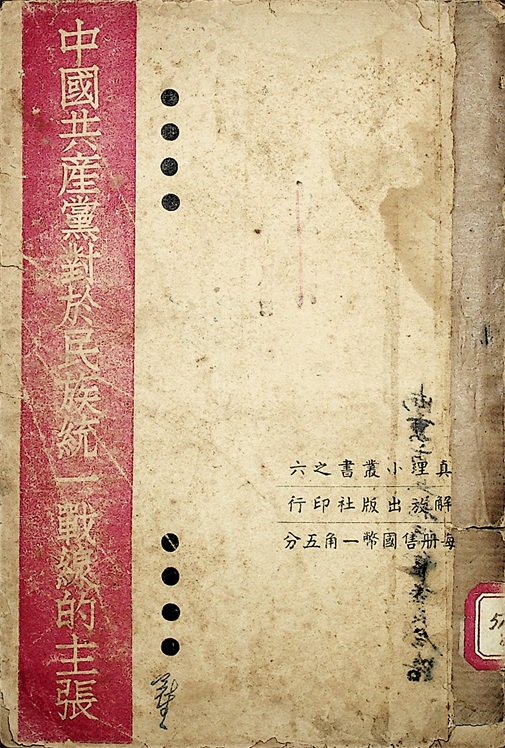 中國共產黨對於民族統一戰線的主張
真理小叢書之六
解放出版社印行
每冊售國幣一角五分